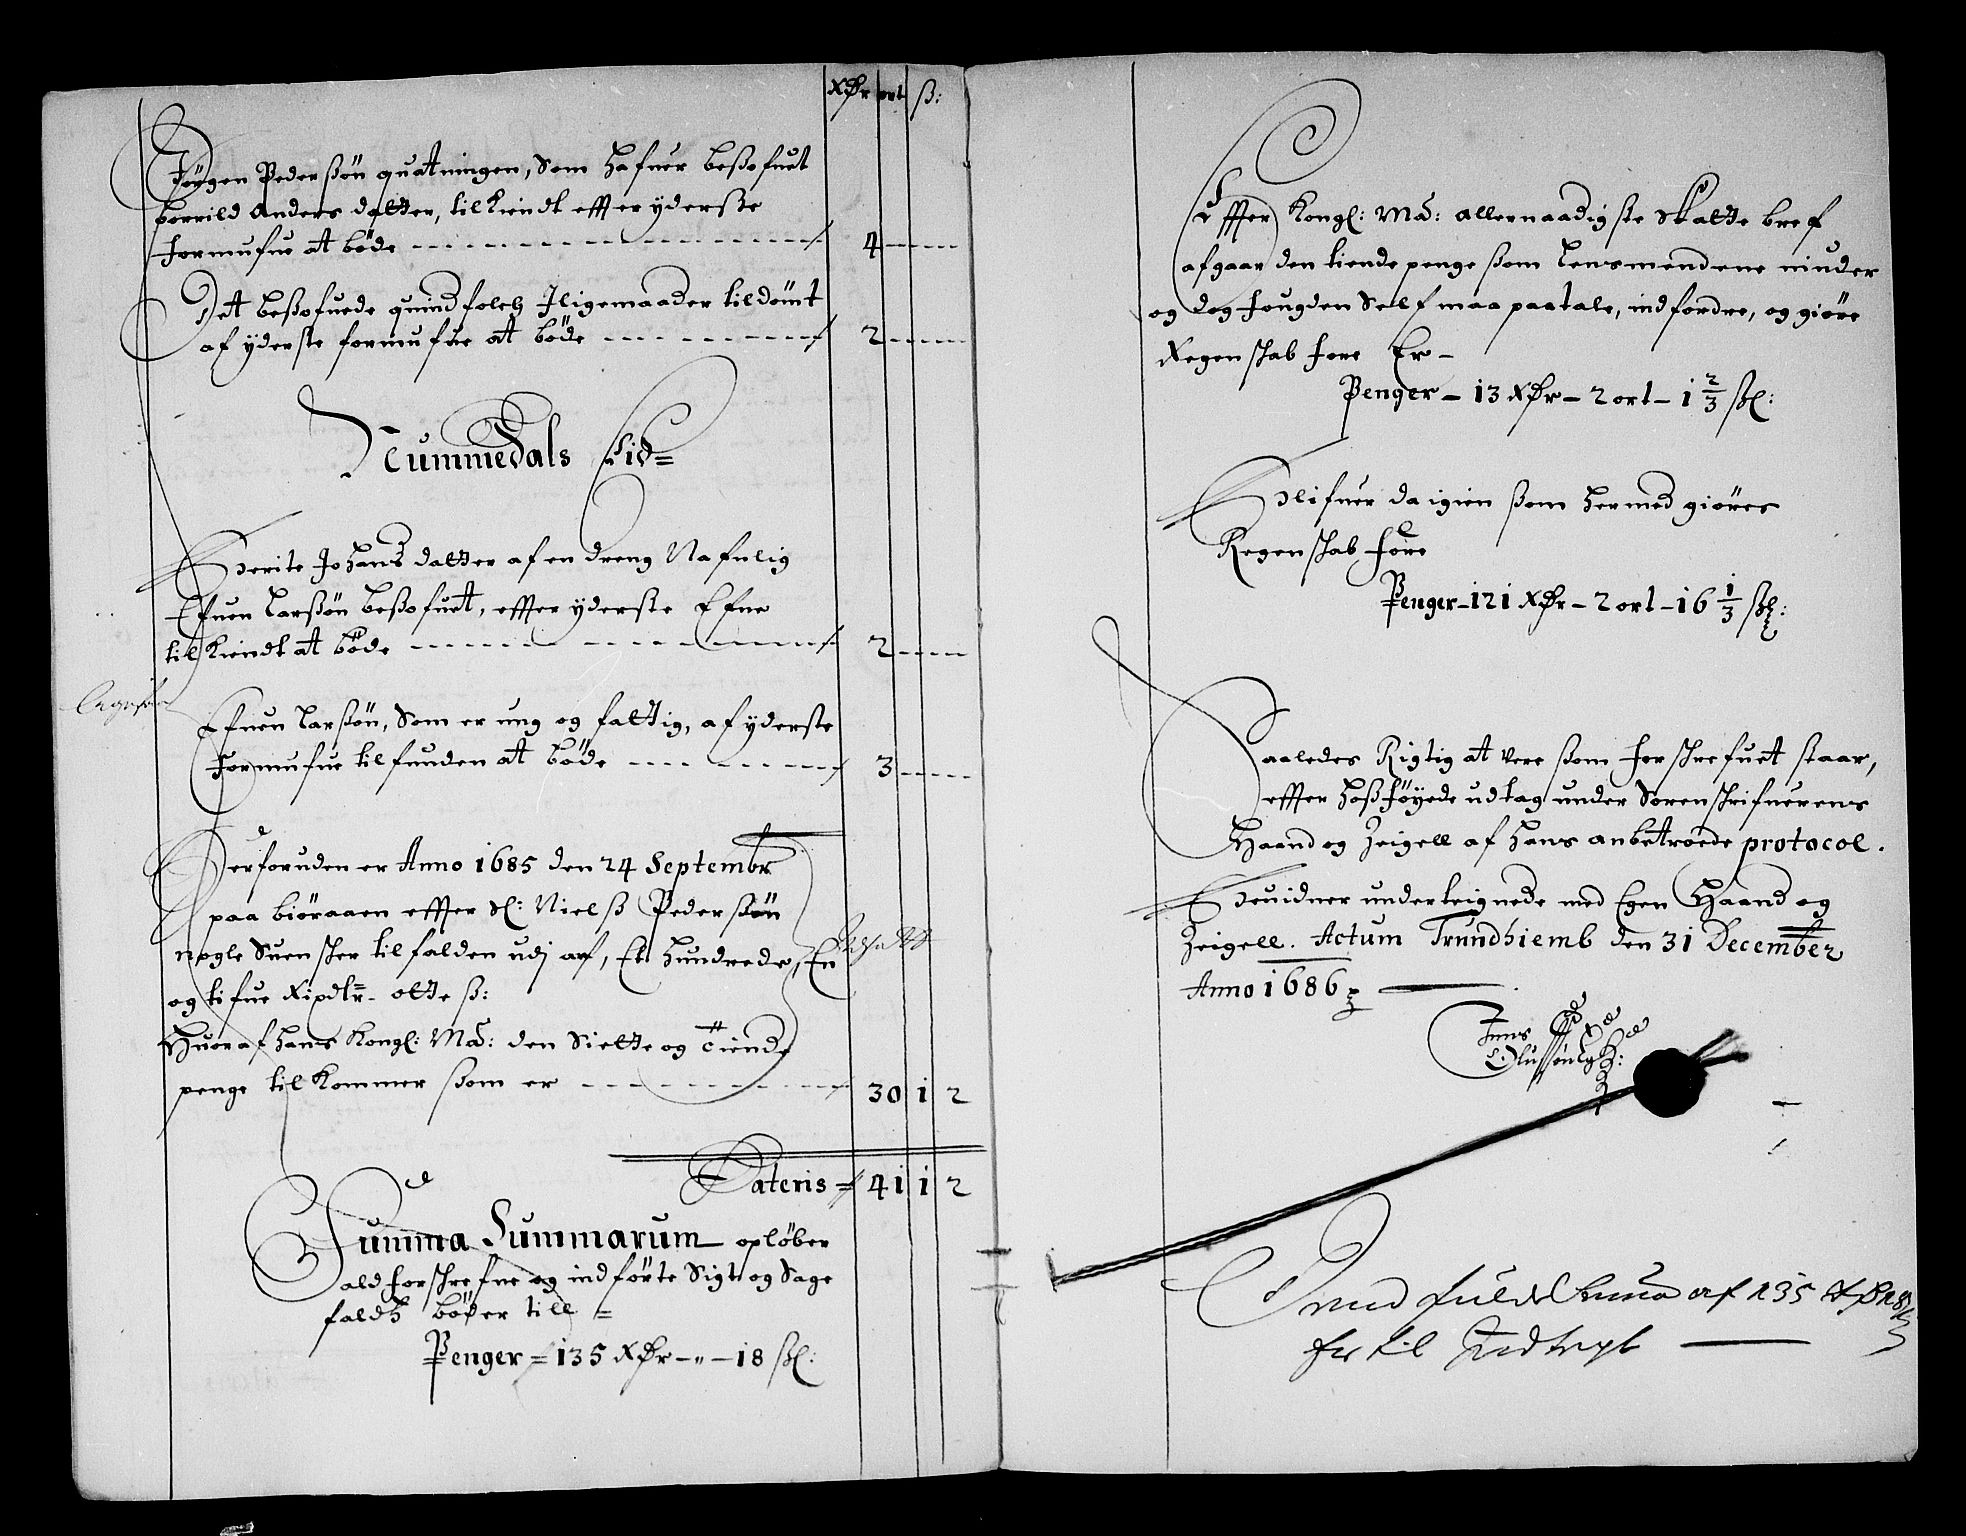 Xdr ort ß:
Jørgen Pederßøn quatningen, Som hafuer beßofuet
borrild Anders datter, tilkiendt effter yderste
formufue at bøde 4
Det beßofuede quindfolch Iligemaader tildømt
af yderste formufue at bøde 2
Nummedals Lid=
Berite Johans datter af en dreng Nafnlig
Efuen Larßøn beßofuet, effter yderste Efne
tilkiendt at bøde 2
Efuen Larßøn, Som er ung og fattig, af yderste
formufue tilfunden at bøde 3
Derforuden er Anno 1685 den 24 Septembr
paa biøraaen effter Sl: Nielß Pederßøn
nogle Suensker tilfalden udj arf, Et hundrede, En
og tifue Rixdlr. otte ß:
Huoraf hans Kongl: Ma: den Siette og Tiende
penge tilkommer ßom er 30 1 2
Lateris 41 1 2
Summa Summarum opløber
ald forschrefne og indførte Sigt og Sage
faldz bøder till =
Penger = 135 Xdr - " - 18 ßl:
Effter Kongl: Ma: allernaadigste Skatte bref
afgaar den tiende penge ßom Lensmendene niuder
og dog fougden Self maa paatale, indfordre, og giøre
Regenskab fore Er -
Penger - 13 Xdr - 2 ort - 1 2/3 ßl:
Blifuer da igien ßom hermed giøres
Regenskab fore
Penger - 121 Xdr - 2 ort - 16 1/3 ßl:
Saaledes Rigtig at vere ßom forschrefuet staar,
effter hoßføyede udtag under Sorenschrifuerens
Haand og Zeigell af hans anbetroede protocol.
Beuidner underteignede med Egen Haand og
Zeigell. Actum Trundhiemb den 31 December
Anno 1686
Jens
Olufsøn
fuld Summa af 135
til Indtegt